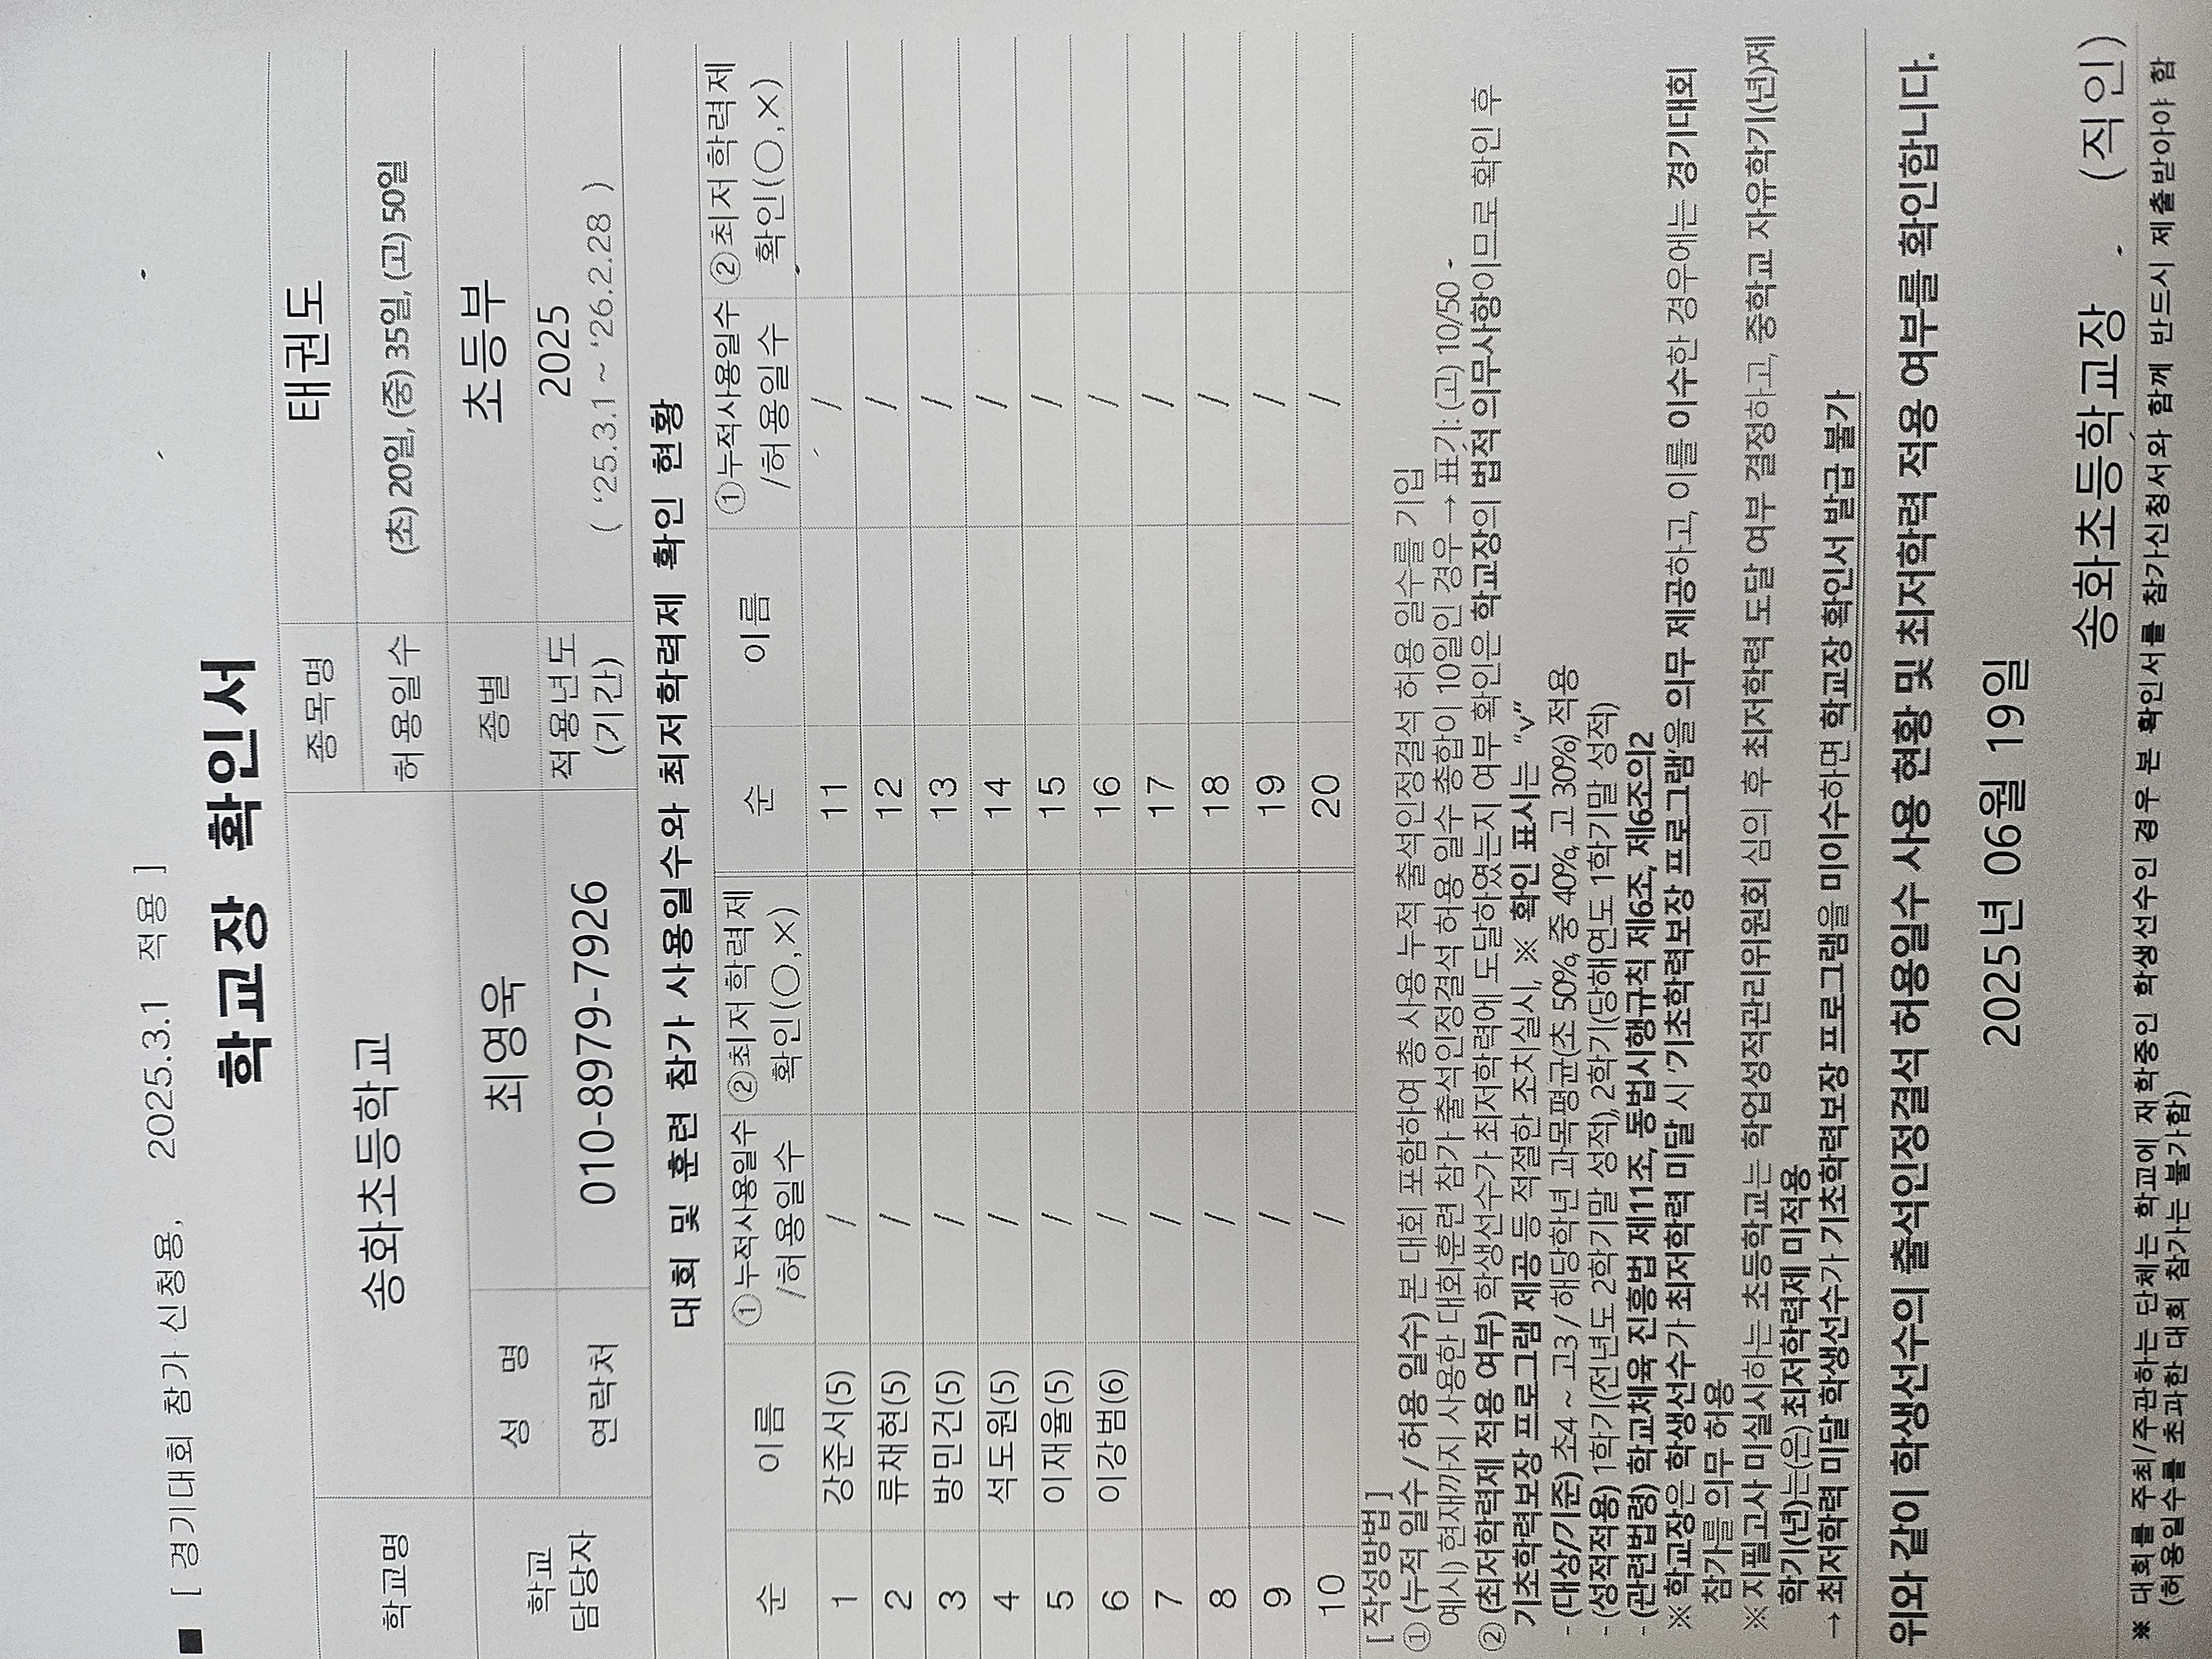 ■ [ 경기대회 참가 신청용, 2025.3.1 적용 ]
학교장 확인서
학교명 송화초등학교 종목명 태권도
허용일수 (초) 20일, (중) 35일, (고) 50일
학교 담당자 성 명 최영욱 종별 초등부
연락처 010-8979-7926 적용년도 (기간) 2025 ( '25.3.1 ~ '26.2.28 )
대회 및 훈련 참가 사용일수와 최저학력제 확인 현황
순 이름 ①누적사용일수 /허용일수 ②최저학력제 확인(○,×) 순 이름 ①누적사용일수 /허용일수 ②최저학력제 확인(○,×)
1 강준서(5) / 11 /
2 류채현(5) / 12 /
3 방민건(5) / 13 /
4 석도원(5) / 14 /
5 이재율(5) / 15 /
6 이강범(6) / 16 /
7 / 17 /
8 / 18 /
9 / 19 /
10 / 20 /
[ 작성방법 ]
① (누적 일수 / 허용 일수) 본 대회 포함하여 총 사용 누적 출석인정결석 허용 일수를 기입
예시) 현재까지 사용한 대회훈련 참가 출석인정결석 허용 일수 총합이 10일인 경우 → 표기: (고) 10/50
② (최저학력제 적용 여부) 학생선수가 최저학력에 도달하였는지 여부 확인은 학교장의 법적 의무사항이므로 확인 후
기초학력보장 프로그램 제공 등 적절한 조치실시, ※ 확인 표시는 “v”
- (대상/기준) 초4 ~ 고3 / 해당학년 과목평균(초 50%, 중 40%, 고 30%) 적용
- (성적적용) 1학기(전년도 2학기말 성적), 2학기(당해연도 1학기말 성적)
- (관련법령) 학교체육 진흥법 제11조, 동법시행규칙 제6조, 제6조의2
※ 학교장은 학생선수가 최저학력 미달 시 '기초학력보장 프로그램'을 의무 제공하고, 이를 이수한 경우에는 경기대회
참가를 의무 허용
※ 지필고사 미실시하는 초등학교는 학업성적관리위원회 심의 후 최저학력 도달 여부 결정하고, 중학교 자유학기(년)제
학기(년)는(은) 최저학력제 미적용
→ 최저학력 미달 학생선수가 기초학력보장 프로그램을 미이수하면 학교장 확인서 발급 불가
위와 같이 학생선수의 출석인정결석 허용일수 사용 현황 및 최저학력 적용 여부를 확인합니다.
2025년 06월 19일
송화초등학교장 (직인)
※ 대회를 주최/주관하는 단체는 학교에 재학중인 학생선수인 경우 본 확인서를 참가신청서와 함께 반드시 제출받아야 함
(허용일수를 초과한 대회 참가는 불가함)